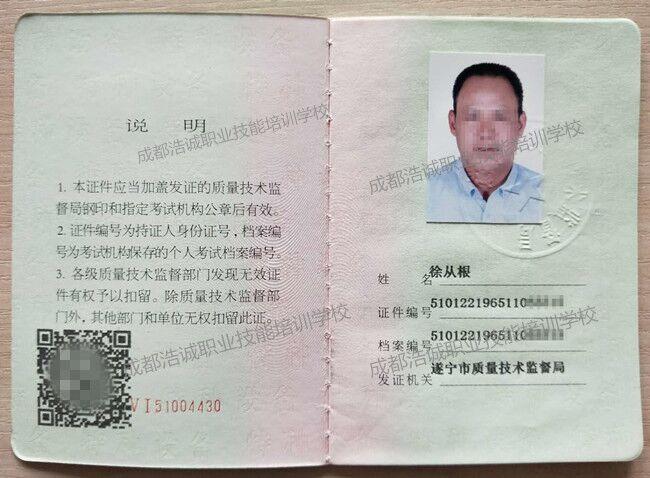 说 明
1. 本证件应当加盖发证的质量技术监
督局钢印和指定考试机构公章后有效。
2. 证件编号为持证人身份证号，档案编
号为考试机构保存的个人考试档案编号。
3. 各级质量技术监督部门发现无效证
件有权予以扣留。除质量技术监督部
门外，其他部门和单位无权扣留此证。
VI51004430
成都浩诚职业技能培训学校
成都浩诚职业技能培训学校
姓 名 徐从根
证件编号 5101221965110
档案编号 5101221965110
发证机关 遂宁市质量技术监督局
成都浩诚职业技能培训学校
成都浩诚职业技能培训学校